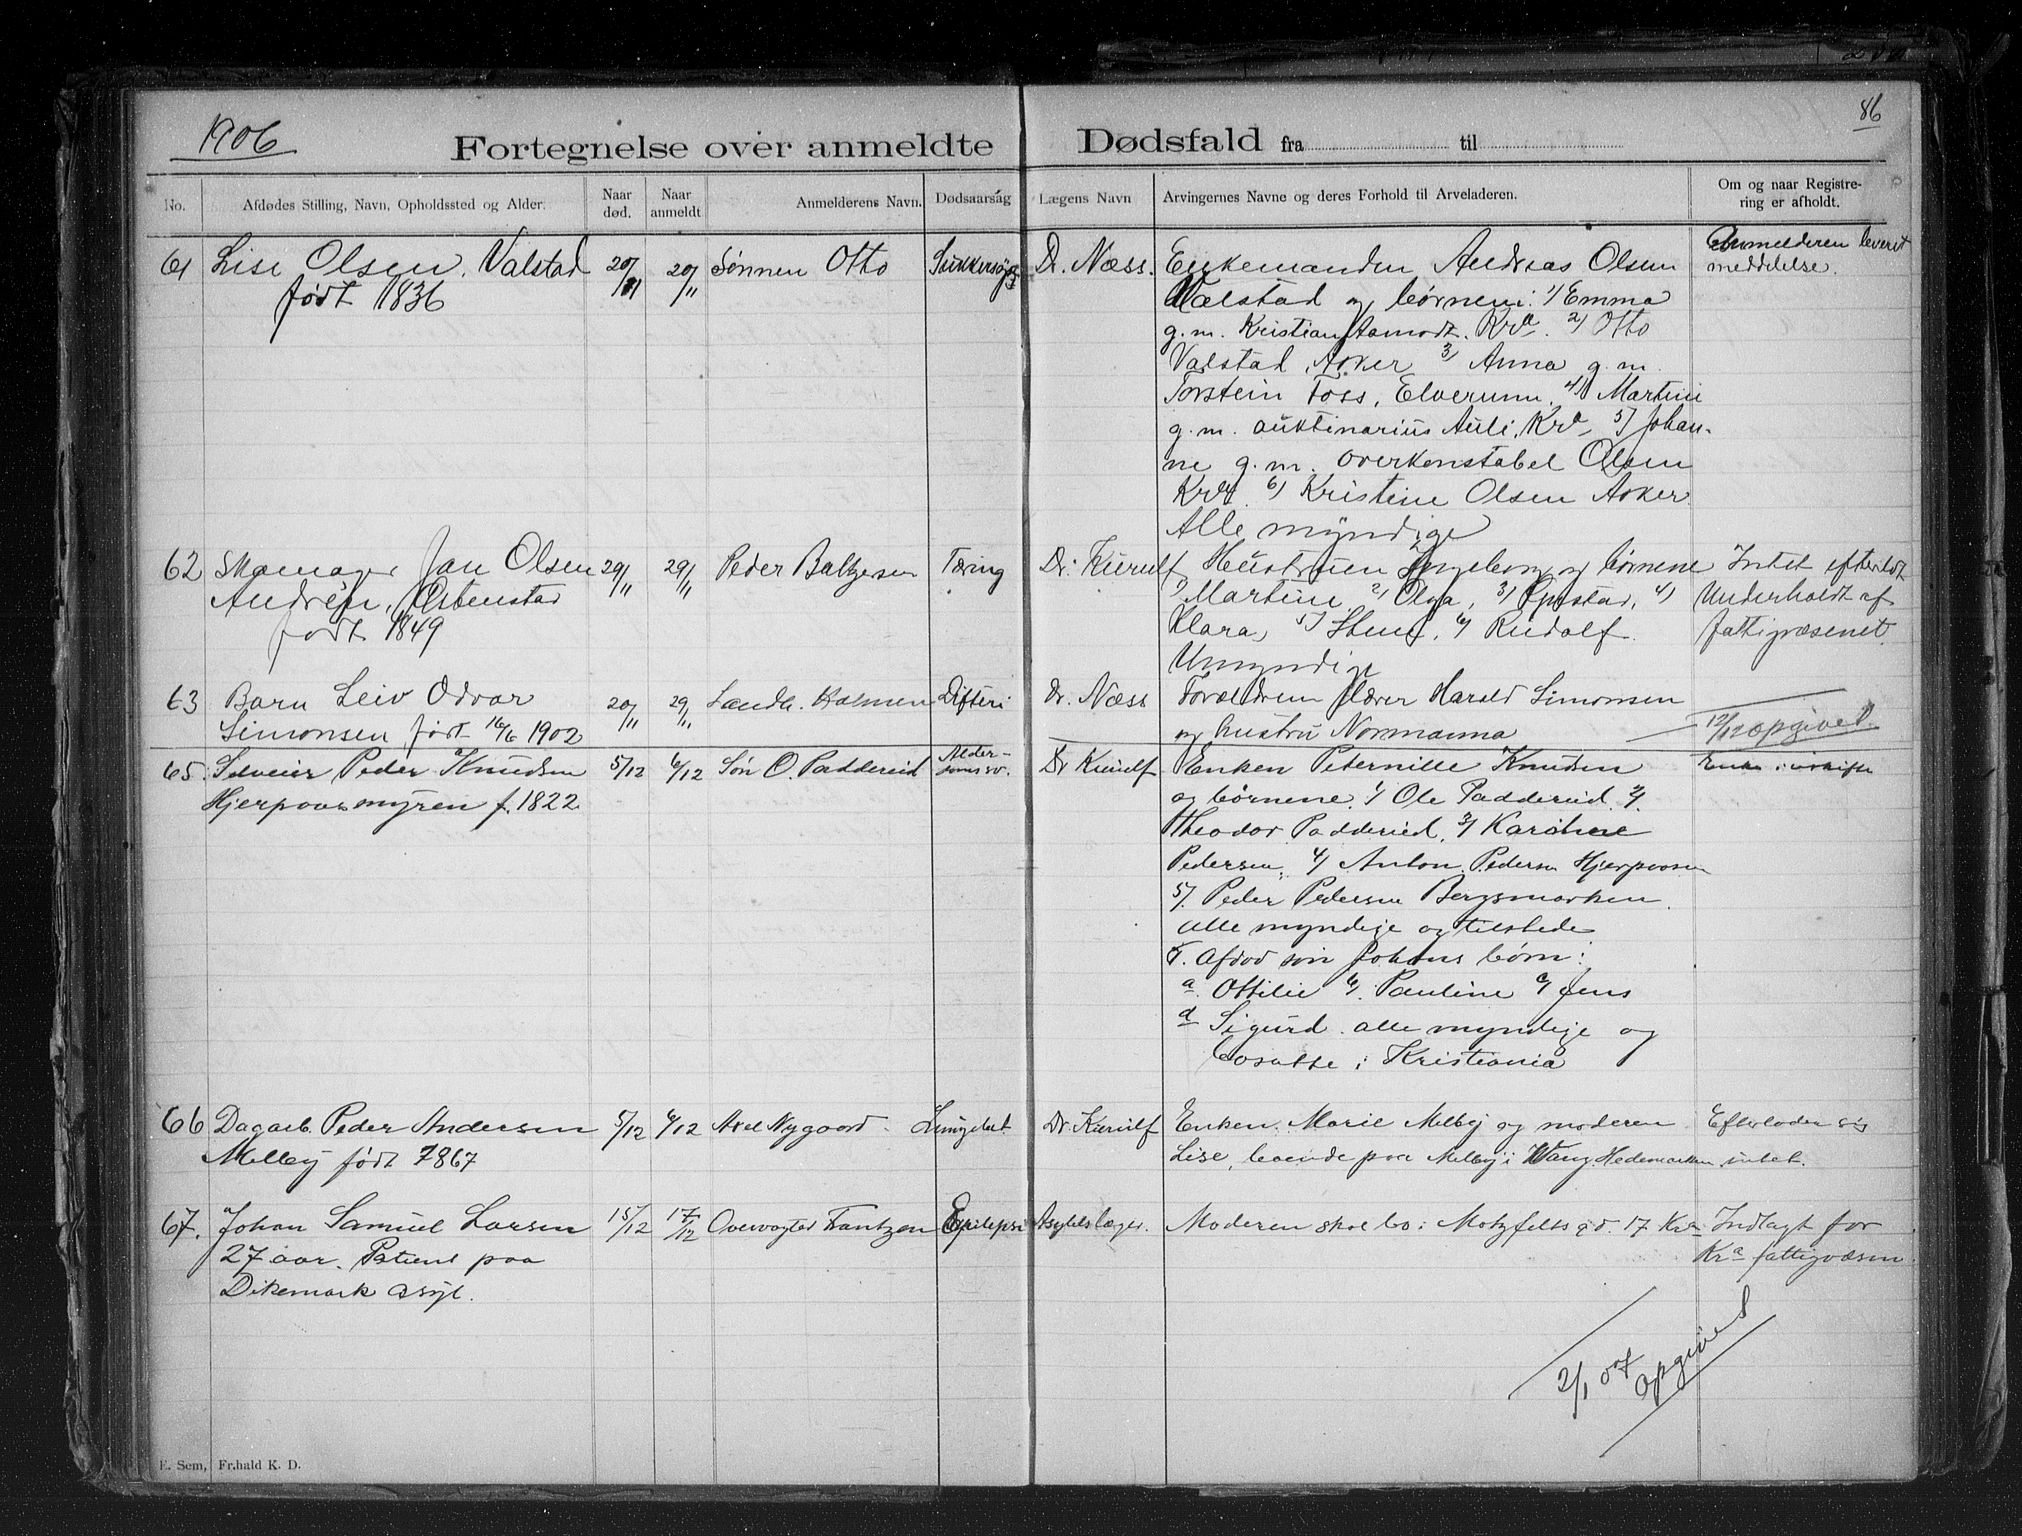 1906
86
Fortegnelse over anmeldte Dødsfald fra til
No. Afdødes Stilling, Navn, Opholdssted og Alder. Naar død. Naar anmeldt Anmelderens Navn. Dødsaarsåg Lægens Navn Arvingernes Navne og deres Forhold til Arveladeren. Om og naar Registrering er afholdt.
61 Lise Olsen, Valstad 20/11 20/11 Sønnen Otto Sukkersyge Dr. Næss. Enkemanden Andreas Olsen Anmelderen leveret
født 1836 Valstad og børnene: 1) Emma meddelelse.
g.m. Kristian Aamodt. Kra. 2) Otto
Valstad, Asker 3) Anna g.m.
Torstein Foss, Elverum, 4) Martine
g.m. auktinarius Auli, Kra, 5) Johan-
ne g.m. overkonstabel Olsen
Kra. 6) Kristine Olsen Asker
Alle myndige
62 Skomager Jan Olsen 29/11 29/11 Peder Baltzersen Tæring Dr. Kierulf Hustruen Ingeborg og børnene Intet efterladt
Andrén, Østenstad 1) Martine, 2) Olga, 3) 4) Underholdt af
født 1849 Klara, 5) 6) Rudolf. fattigvæsenet
Umyndige
63 Barn Leiv Odvar 20/11 29/11 Landh. Holmen Difteri Dr. Næss Forældrene Harald Simonsen
Simonsen født 16/6 1902 og hustru Normanna 12/12 opgivet
65. Selveier Peder Knudsen 5/12 6/12 Søn O. Padderud Alder- Dr Kierulf Enken Peternille Knudsen Enke i uskifte
Hjerpaasmyren f. 1822 domssv. og børnene. 1) Ole Padderud. 2)
Theodor Padderud, 3) Karoline
Pedersen, 4) Anton Pedersen Hjerpaasen
5) Peder Pedersen Bergsmarken.
alle myndige og tilstede
Afdød søn Johans børn:
a. Ottilie b) Pauline c) Jens
d Sigurd. alle myndige og
bosatte i Kristiania
66 Dagarb. Peder Andersen 5/12 6/12 Axel Nygaard. Lungebet Dr. Kierulf Enken Marie Melby og moderen Efterlader sig
Melby født 1867 Lise, boende paa Melby i Vang Hedemarken intet.
67. Johan Samuel Larsen 15/12 17/12 Overvogter Frantzen Epilepsi Asylslæger. Moderen skal bo i Motzfeldts gd. 17 Kra Indlagt for
27 aar. Patient paa Kra fattigvæsen.
Dikemark asyl.
2/1 07 opgivet
E. Sem, Fr.hald K. D.